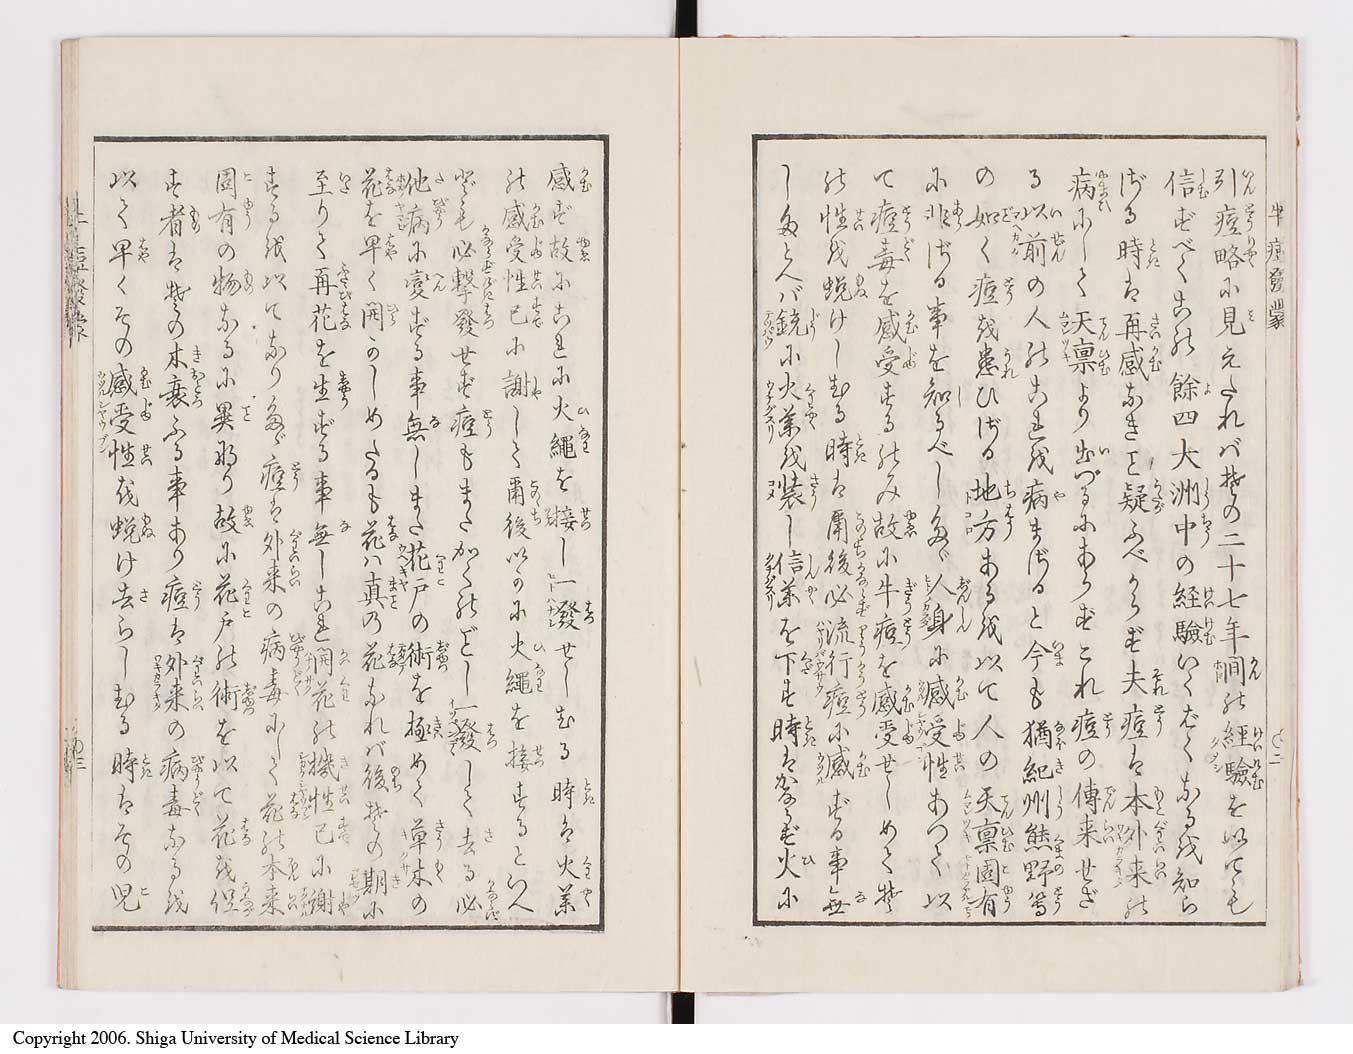 牛痘發蒙
引痘略に見えたれバ其の二十七年間の経験を以ても
信ずべく其の餘四大洲中の経験いくばくなるを知ら
ざる時は再感なきこと疑ふべからず夫痘は本外来の
病にして天禀より出づるにあらずこれ痘の傳来せざ
る以前の人のこれを病まざると今も猶紀州熊野等
の如く痘を患ひざる地方あるを以て人の天禀固有
に非ざる事を知るべし多ゞ人身に感受性あつて以
て痘毒を感受するのみ故に牛痘を感受せしめて其
の性を蛻けしむる時は爾後必流行痘に感ずる事無
し多とへバ銃に火薬を装し信薬を下す時はかならず火に
感ず故にこれに火繩を接し一發せしむる時は火薬
の感受性已に謝して爾後以かに火繩を接するといへ
ども必撃發せず痘もまたかくのごとし一發して去る必
他病に変ずる事無しまた花戸の術を極めて草木の
花を早く開かしめたるも花ハ真の花なれバ後其の期に
至りて再花を生ずる事無しこれ開花の機性已に謝
するを以てなり多ゞ痘は外来の病毒にして花の本来
固有の物なるに異なり故に花戸の術を以て花を促
す者は其の木衰ふる事あり痘は外来の病毒なるを
以て早くその感受性を蛻け去らしむる時はその児
Copyright 2006. Shiga University of Medical Science Library